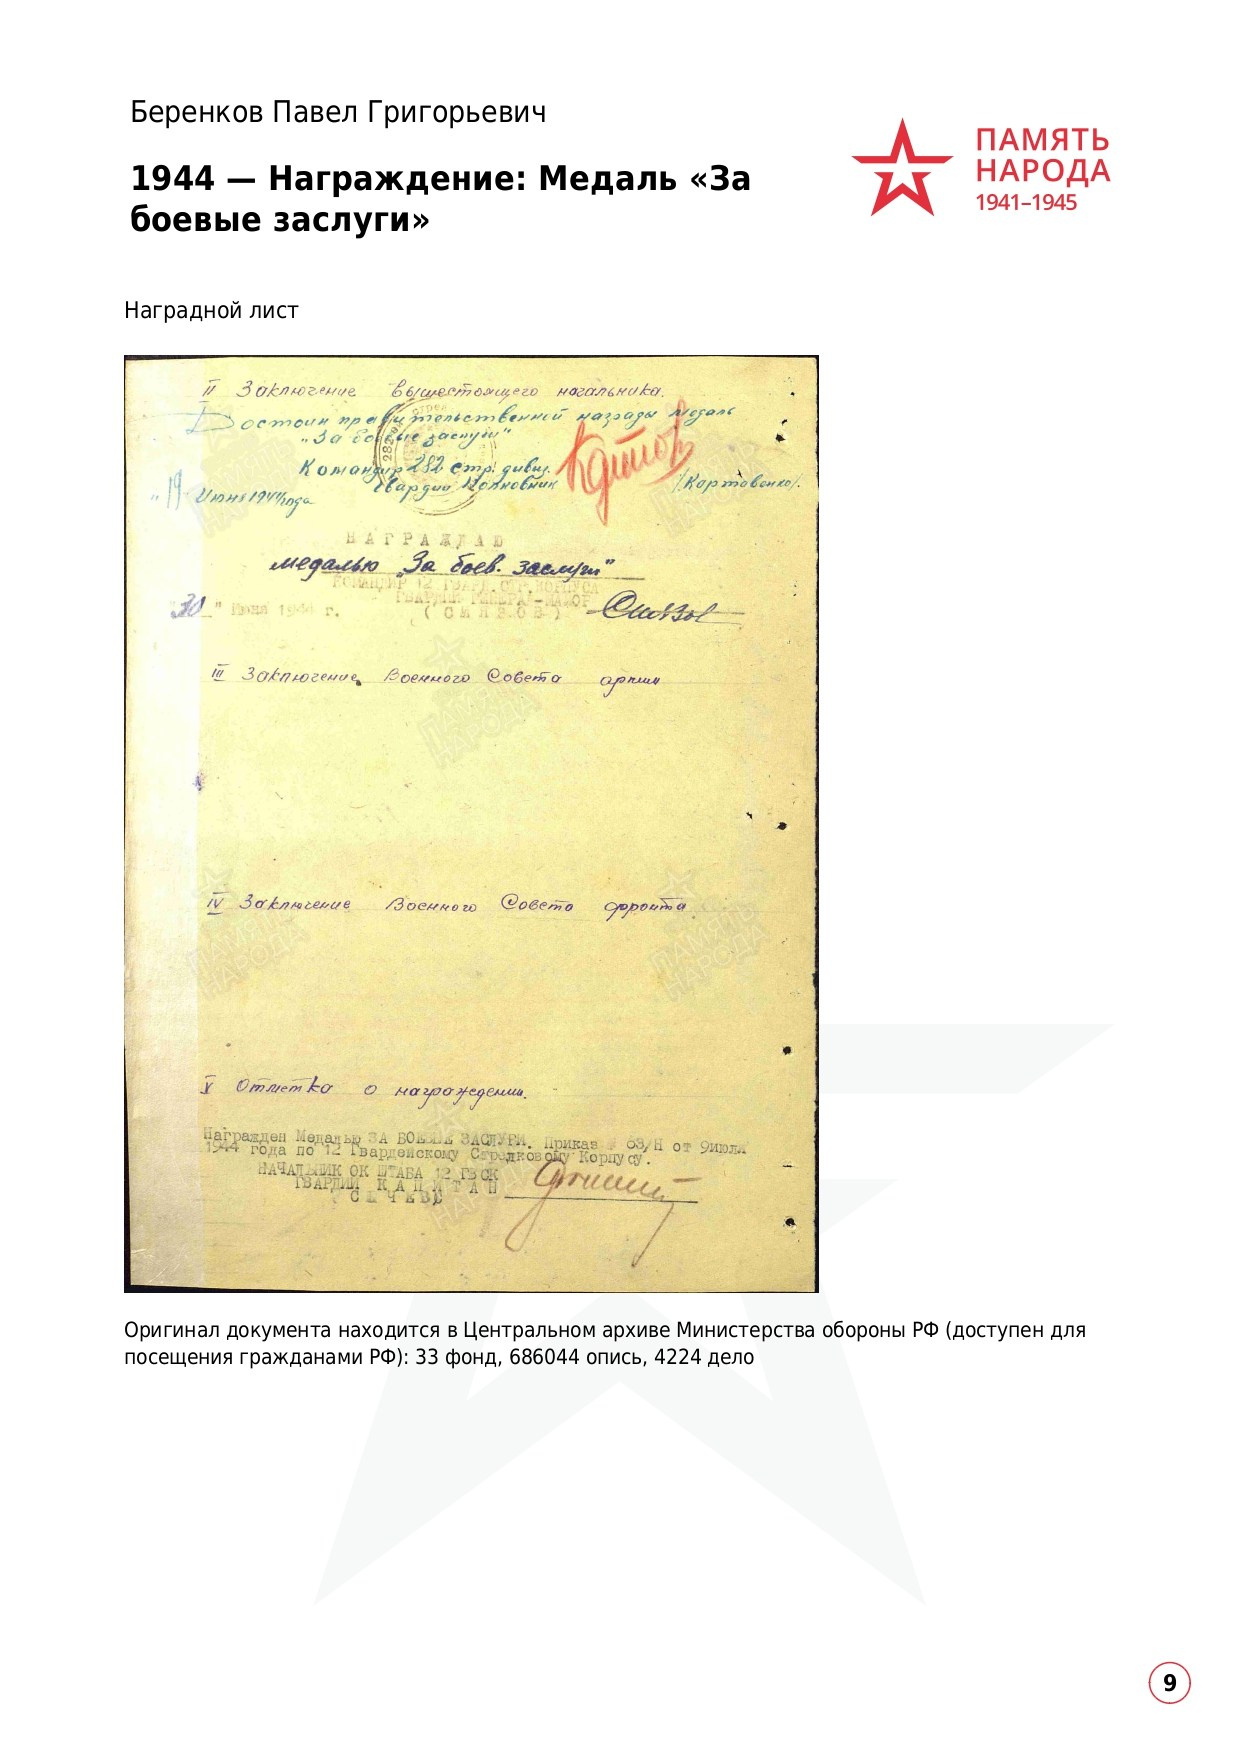 Беренков Павел Григорьевич
1944 — Награждение: Медаль «За
боевые заслуги»
ПАМЯТЬ
НАРОДА
1941–1945
Наградной лист
II Заключение вышестоящего начальника.
Достоин правительственной награды медаль
"За боевые заслуги"
Командир 282 стр. дивиз.
Гвардии Полковник /Картавенко/.
"19 Июня 1944 года
НАГРАЖДАЮ
медалью "За боев. заслуги"
КОМАНДИР 12 ГВАРД. СТР. КОРПУСА
ГВАРДИИ ГЕНЕРАЛ-МАЙОР
"30" Июня 1944 г. (СИЯЗОВ)
III Заключение Военного Совета армии
IV Заключение Военного Совета фронта
V Отметка о награждении.
Награжден Медалью ЗА БОЕВЫЕ ЗАСЛУГИ. Приказ 63/Н от 9июля
1944 года по 12 Гвардейскому Стрелковому Корпусу.
НАЧАЛЬНИК ОК ШТАБА 12 ГВСК
ГВАРДИИ КАПИТАН
Оригинал документа находится в Центральном архиве Министерства обороны РФ (доступен для
посещения гражданами РФ): 33 фонд, 686044 опись, 4224 дело
9